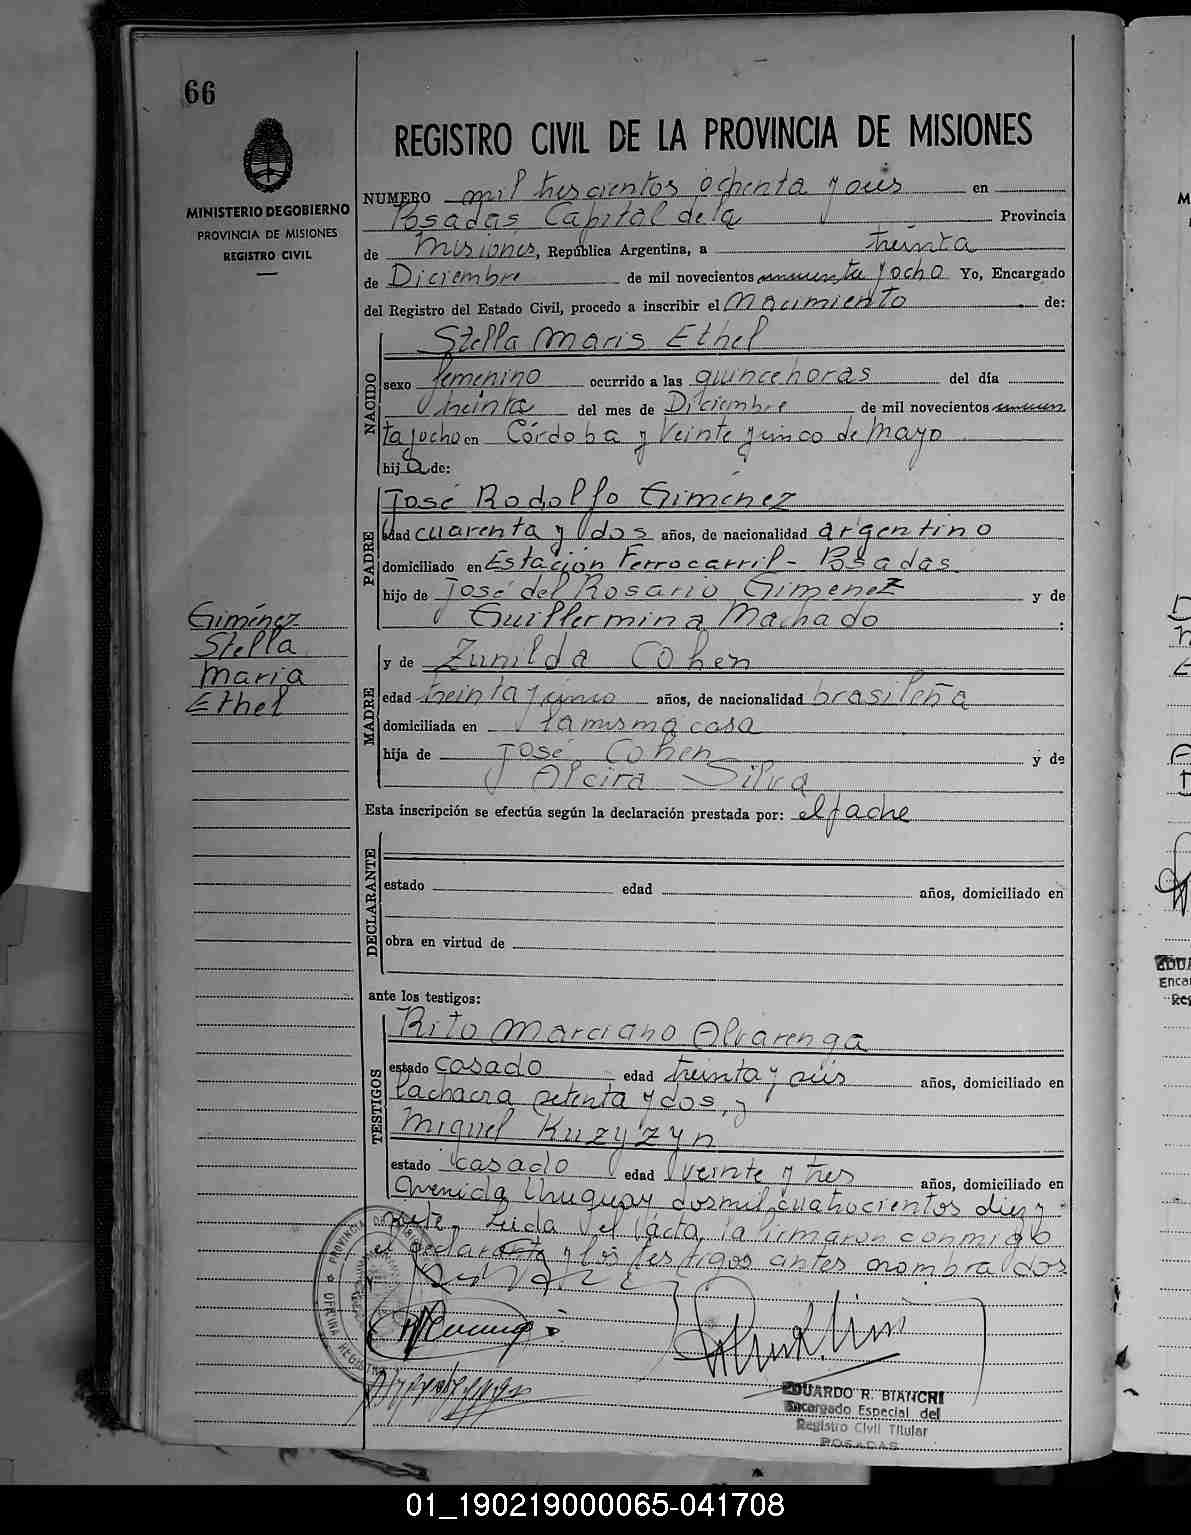 66
MINISTERIO DE GOBIERNO
PROVINCIA DE MISIONES
REGISTRO CIVIL
REGISTRO CIVIL DE LA PROVINCIA DE MISIONES
NUMERO mil trescientos ochenta y seis en
Posadas Capital de la Provincia
de Misiones, República Argentina, a treinta
de Diciembre de mil novecientos cincuenta y ocho Yo, Encargado
del Registro del Estado Civil, procedo a inscribir el Nacimiento de:
NACIDO
Stella Maris Ethel
sexo femenino ocurrido a las quince horas del día
treinta del mes de Diciembre de mil novecientos cincuen
ta y ocho en Córdoba y Veinte y cinco de Mayo
hij a de:
PADRE
José Rodolfo Giménez
edad cuarenta y dos años, de nacionalidad argentino
domiciliado en Estación Ferrocarril - Posadas
hijo de José del Rosario Gimenez y de
Guillermina Machado :
Giménez
Stella
Maria
Ethel
MADRE
y de Zunilda Cohen
edad treinta y cinco años, de nacionalidad brasileña
domiciliada en la misma casa
hija de José Cohen y de
Alcira Silva
Esta inscripción se efectúa según la declaración prestada por: el padre
DECLARANTE
estado edad años, domiciliado en
obra en virtud de
ante los testigos:
TESTIGOS
Rito Marciano Alvarenga
estado casado edad treinta y seis años, domiciliado en
la chacra setenta y dos, y
Miguel Kuzyzyn
estado casado edad veinte y tres años, domiciliado en
Avenida Uruguay dos mil cuatrocientos diez y
siete. Leida el acta, la firmaron conmigo
el declarante y los testigos antes nombrados
EDUARDO R. BIANCHI
Encargado Especial del
Registro Civil Titular
POSADAS
01_190219000065-041708